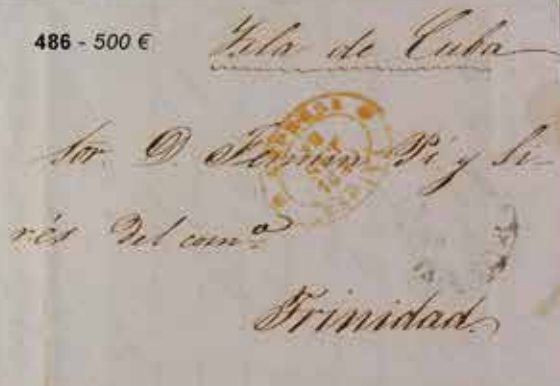 486 - 500 €
Isla de Cuba
Sor. D. Fermin Pi y Si-
rés del comº
Trinidad